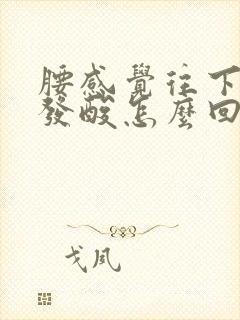 腰感覺往下
發酸怎麼回
戈風